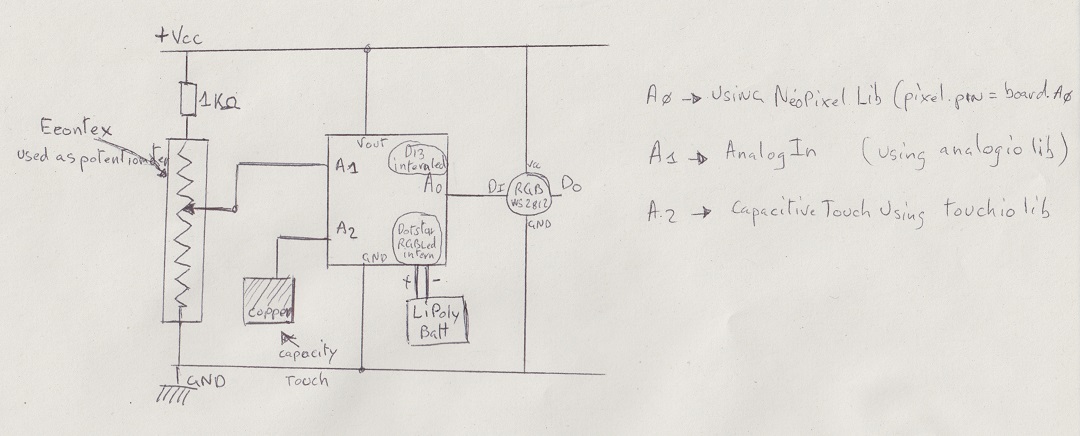 +Vcc
1KΩ
Eeontex
used as potentiometer
Vout
D13
integrated
A1
A0
A2
Dotstar
RGBLed
intern
GND
+ -
LiPoly
Batt
copper
capacity
Touch
GND
Vcc
DI
RGB
WS2812
Do
GND
AØ → using NeoPixel Lib (pixel.pin = board.AØ
A1 → AnalogIn (using analogio lib)
A.2 → capacitive Touch Using touchio lib